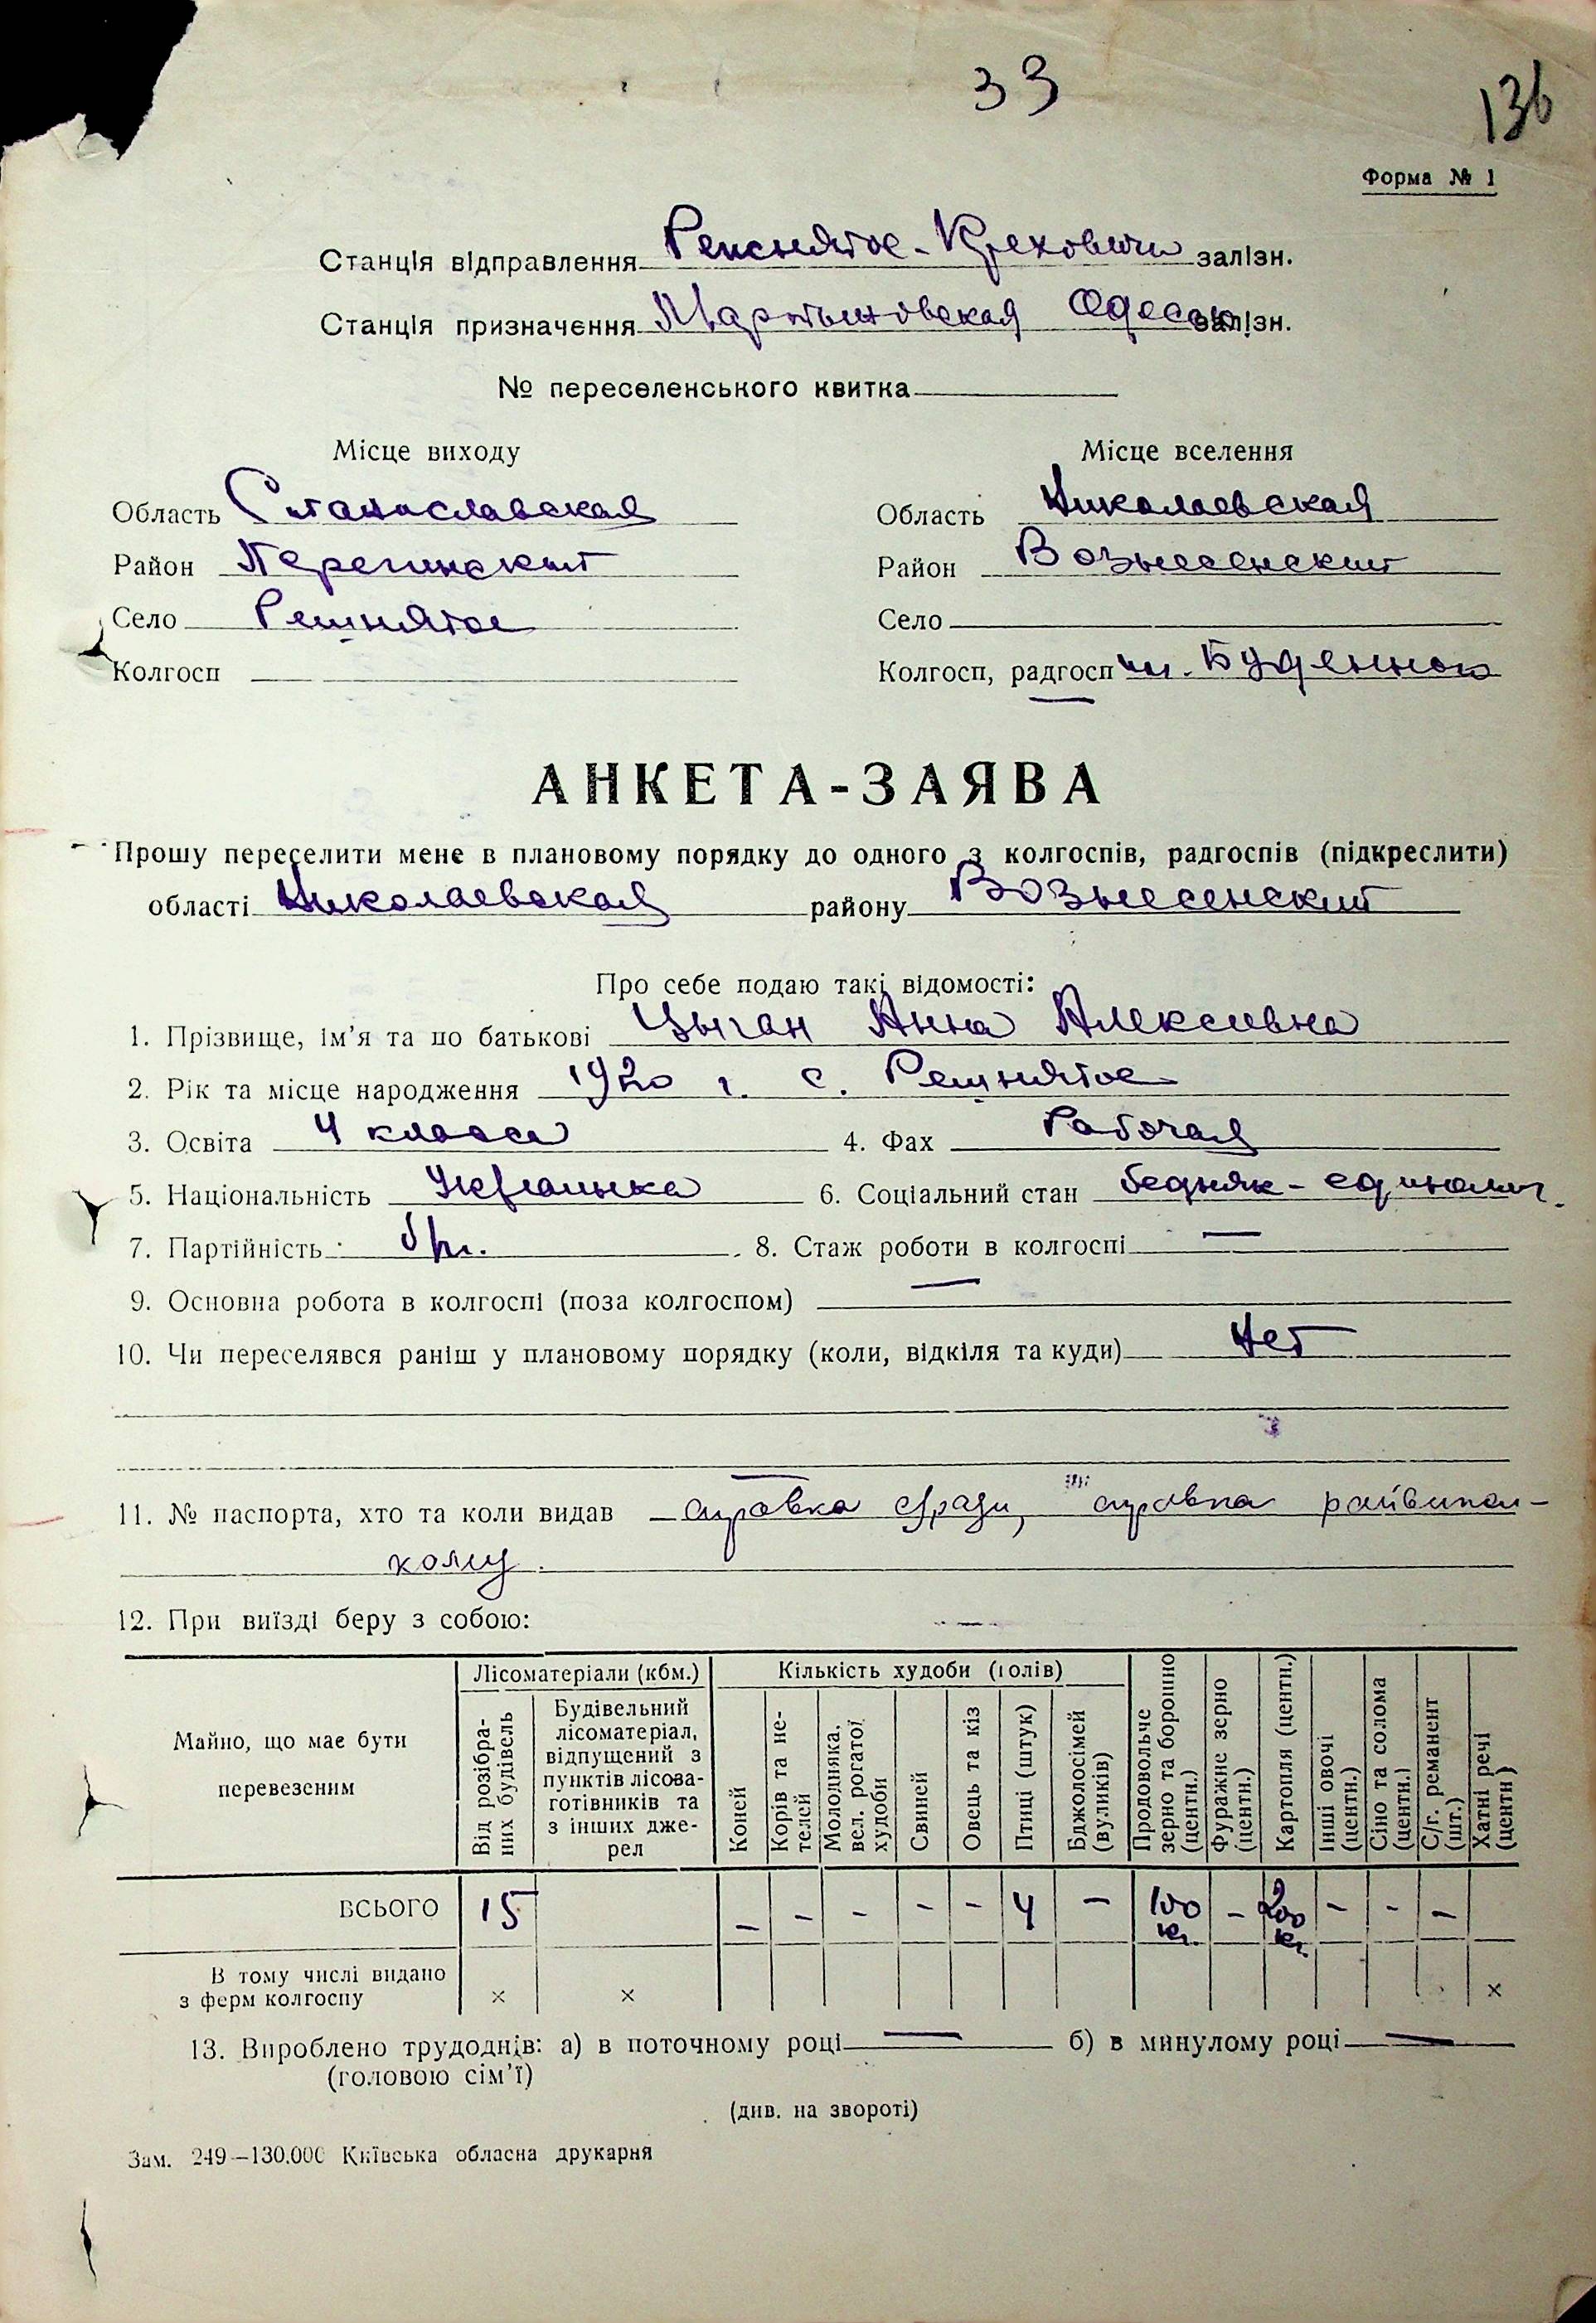 33
136
Форма № 1
Станція відправлення Репснятое - Креховичи залізн.
Станція призначення Мартыновская Одесск. залізн.
№ переселенського квитка
Місце виходу
Місце вселення
Область Станиславская
Область Николаевская
Район Перегинский
Район Вознесенский
Село Решнятое
Село
Колгосп —
Колгосп, радгосп им. Буденного
АНКЕТА-ЗАЯВА
Прошу переселити мене в плановому порядку до одного з колгоспів, радгоспів (підкреслити)
області Николаевская району Вознесенский
Про себе подаю такі відомості:
1. Прізвище, ім’я та по батькові Цыган Анна Алексивна
2. Рік та місце народження 1920 г. с. Решнятое
3. Освіта 4 класса 4. Фах Рабочая
5. Національність Украинка 6. Соціальний стан бедняк - единолич.
7. Партійність б/п. 8. Стаж роботи в колгоспі —
9. Основна робота в колгоспі (поза колгоспом) —
10. Чи переселявся раніш у плановому порядку (коли, відкіля та куди) Нет
11. № паспорта, хто та коли видав справка с/ради, справка райвикон-
кому.
12. При виїзді беру з собою: —
Майно, що має бути перевезеним
Лісоматеріали (кбм.)
Від розібраних будівель
Будівельний лісоматеріал, відпущений з пунктів лісозаготівників та з інших джерел
Кількість худоби (голів)
Коней
Корів та нетелей
Молодняка, вел. рогатої худоби
Свиней
Овець та кіз
Птиці (штук)
Бджолосімей (вуликів)
Продовольче зерно та борошно (центн.)
Фуражне зерно (центн.)
Картопля (центн.)
Інші овочі (центн.)
Сіно та солома (центн.)
С/г. реманент (шт.)
Хатні речі (центн)
ВСЬОГО 15 – – – – – 4 – 100 кг. – 200 кг. – – –
В тому числі видано
з ферм колгоспу × × ×
13. Вироблено трудоднів: а) в поточному році — б) в минулому році —
(головою сім’ї)
(див. на звороті)
Зам. 249—130.000 Київська обласна друкарня